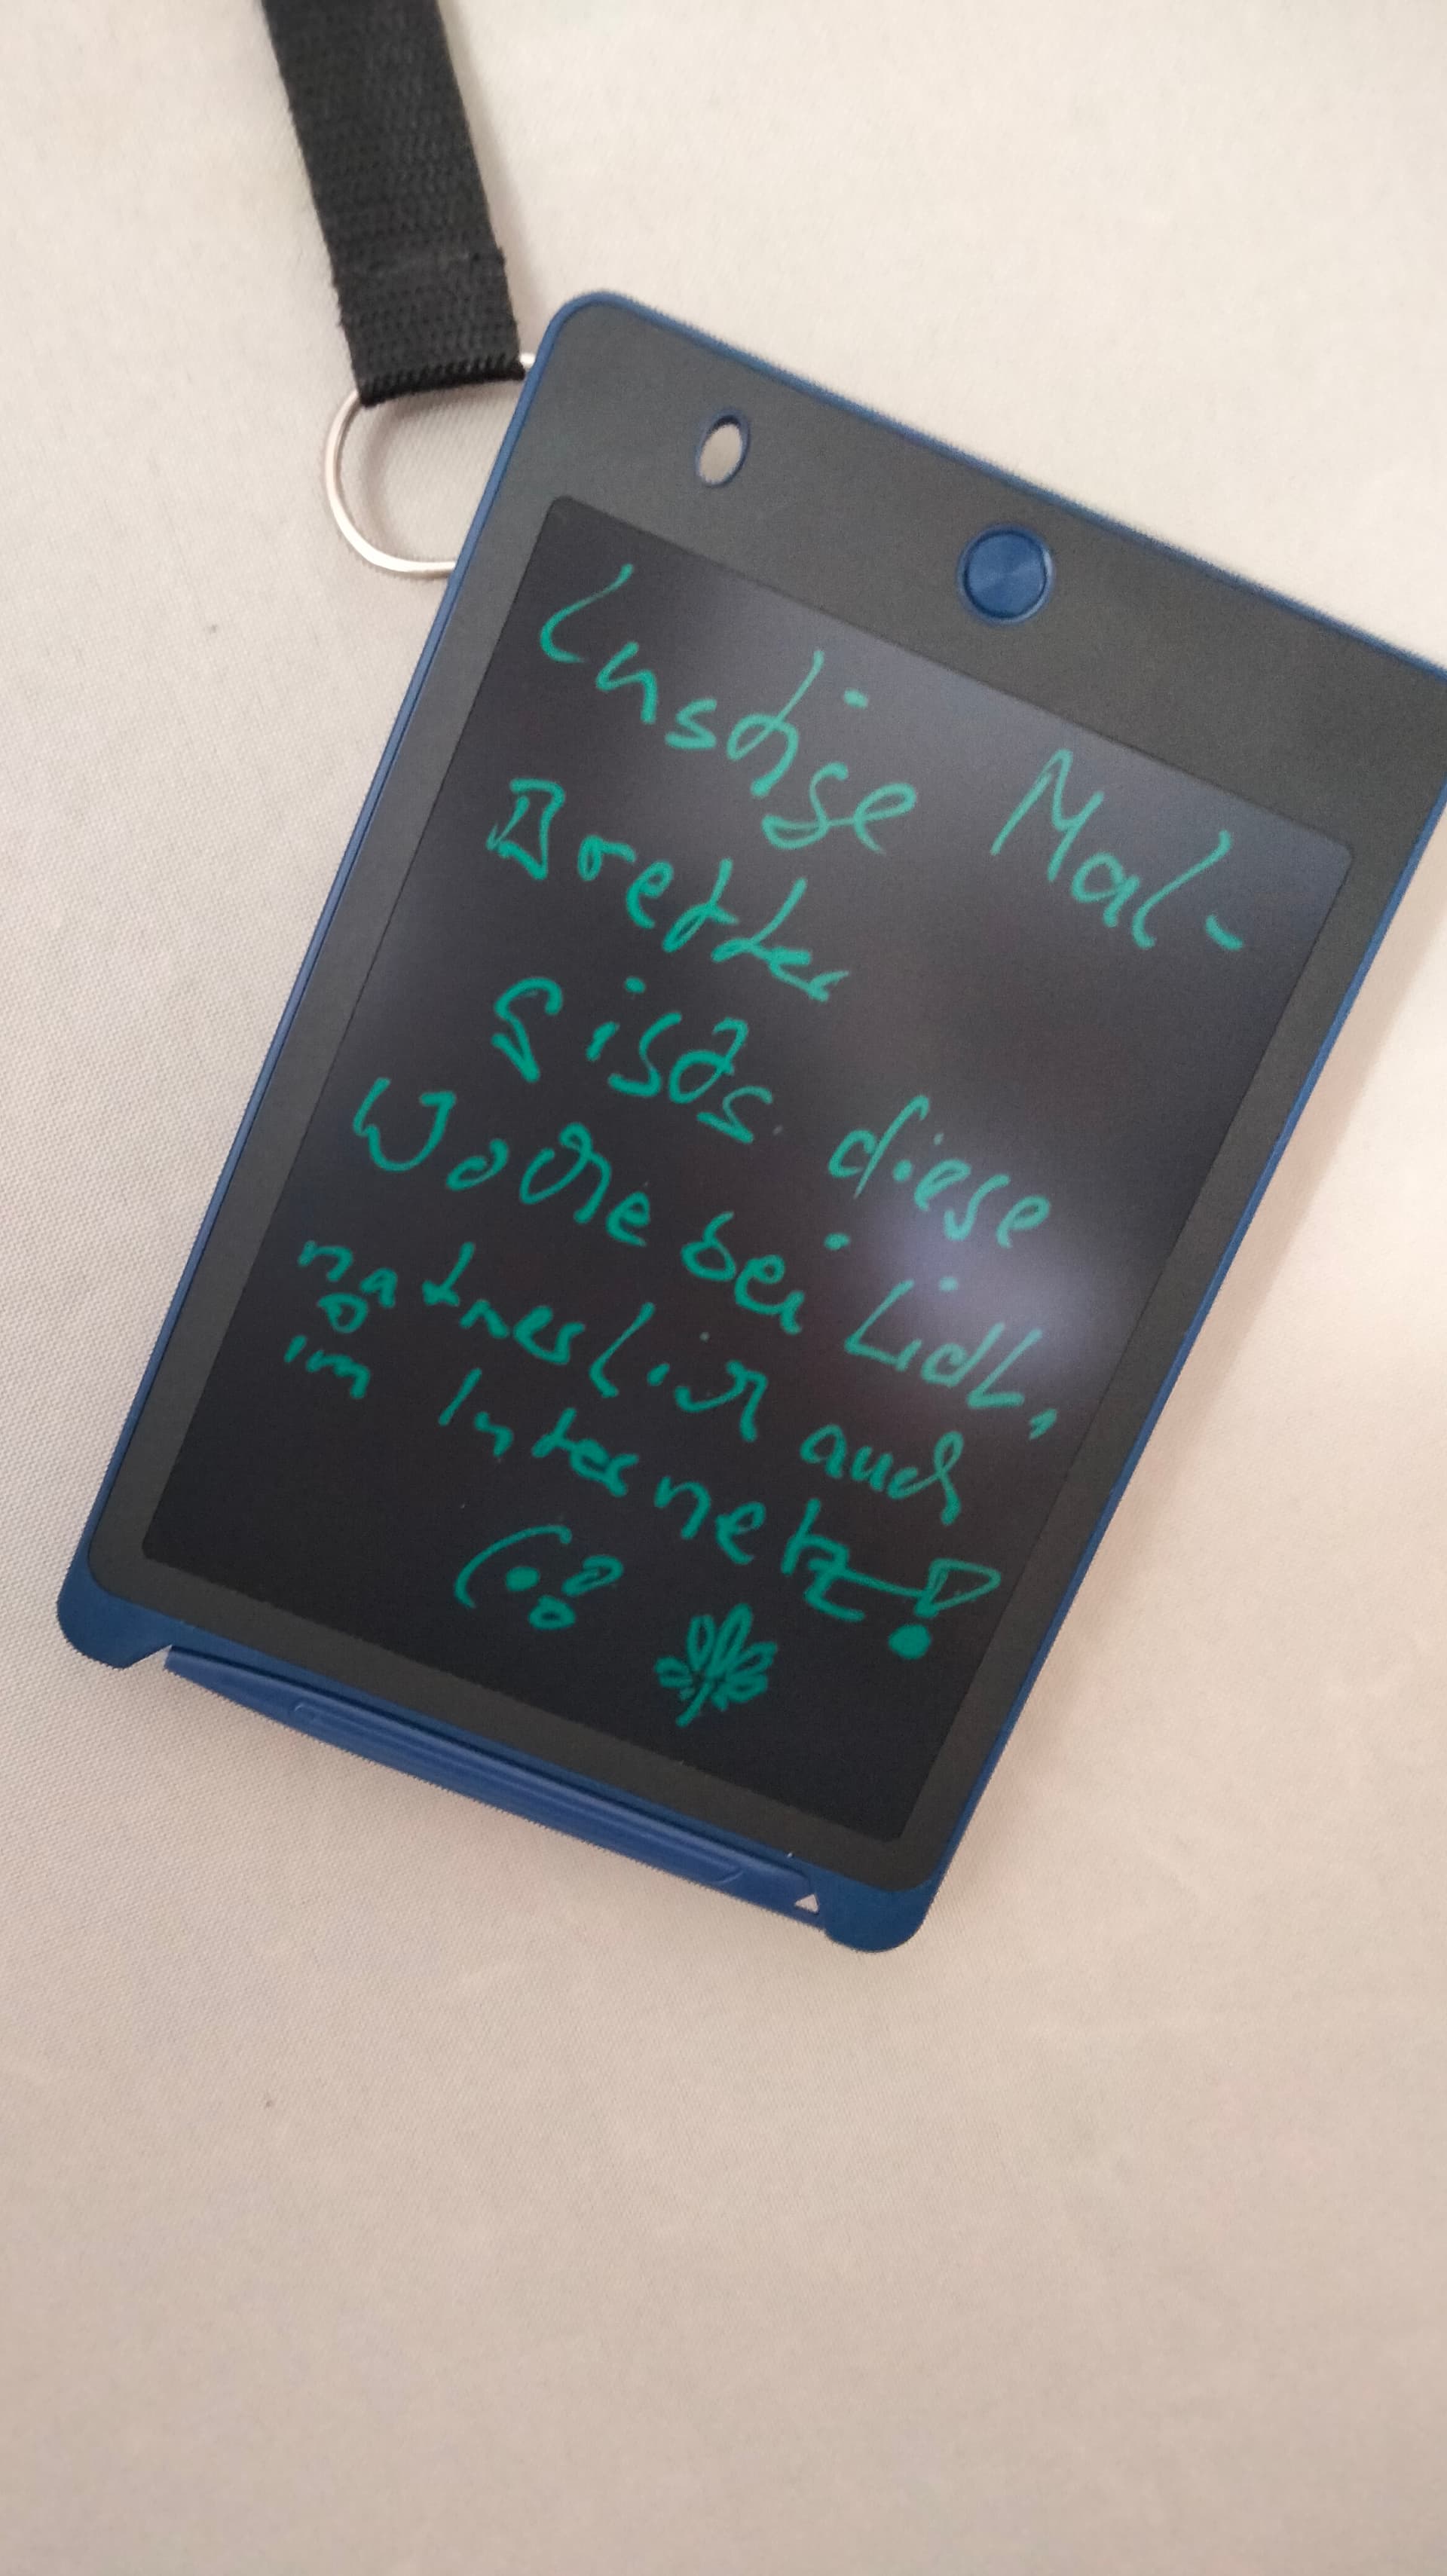 Lustige Mal-
Bretter
gists diese
Woche bei Lidl,
natuerlich auch
im Internetz!